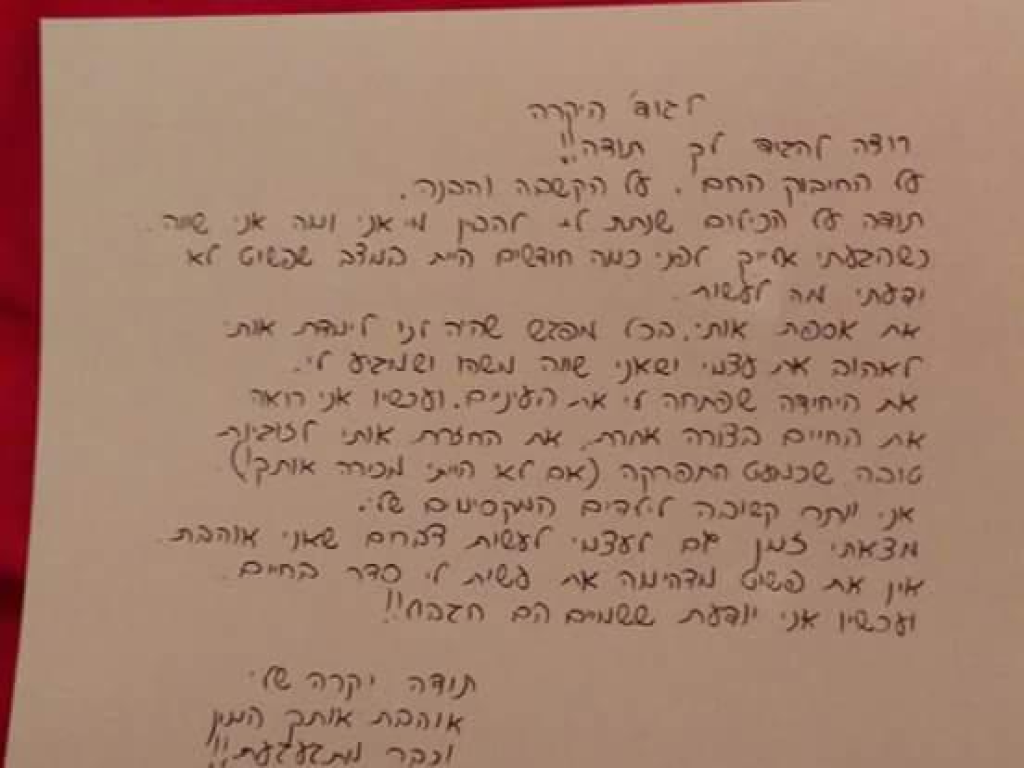 לגודי היקרה
רוצה להגיד לך תודה!!
על החיבוק החם. על הקשבה והבנה.
תודה על הכילים שנתת לי להבין מי אני ומה אני שווה.
כשהגעתי אלייך לפני כמה חודשים היתי במצב שפשוט לא
ידעתי מה לעשות.
את אספת אותי. בכל מפגש שהיה לנו לימדת אותי
לאהוב את עצמי ושאני שווה משהו ושמגיע לי.
את היחידה שפתחה לי את העיניים. ועכשיו אני רואה
את החיים בצורה אחרת. את החזרת אותי לזוגיות
טובה שכמעט התפרקה (אם לא הייתי מכירה אותך!)
אני יותר קשובה לילדים המקסימים שלי.
מצאתי זמן גם לעצמי לעשות דברים שאני אוהבת.
אין את פשוט מדהימה את עשית לי סדר בחיים.
ועכשיו אני יודעת ששמיים הם הגבול!!
תודה יקרה שלי
אוהבת אותך המון
וכבר מתגעגעת!!